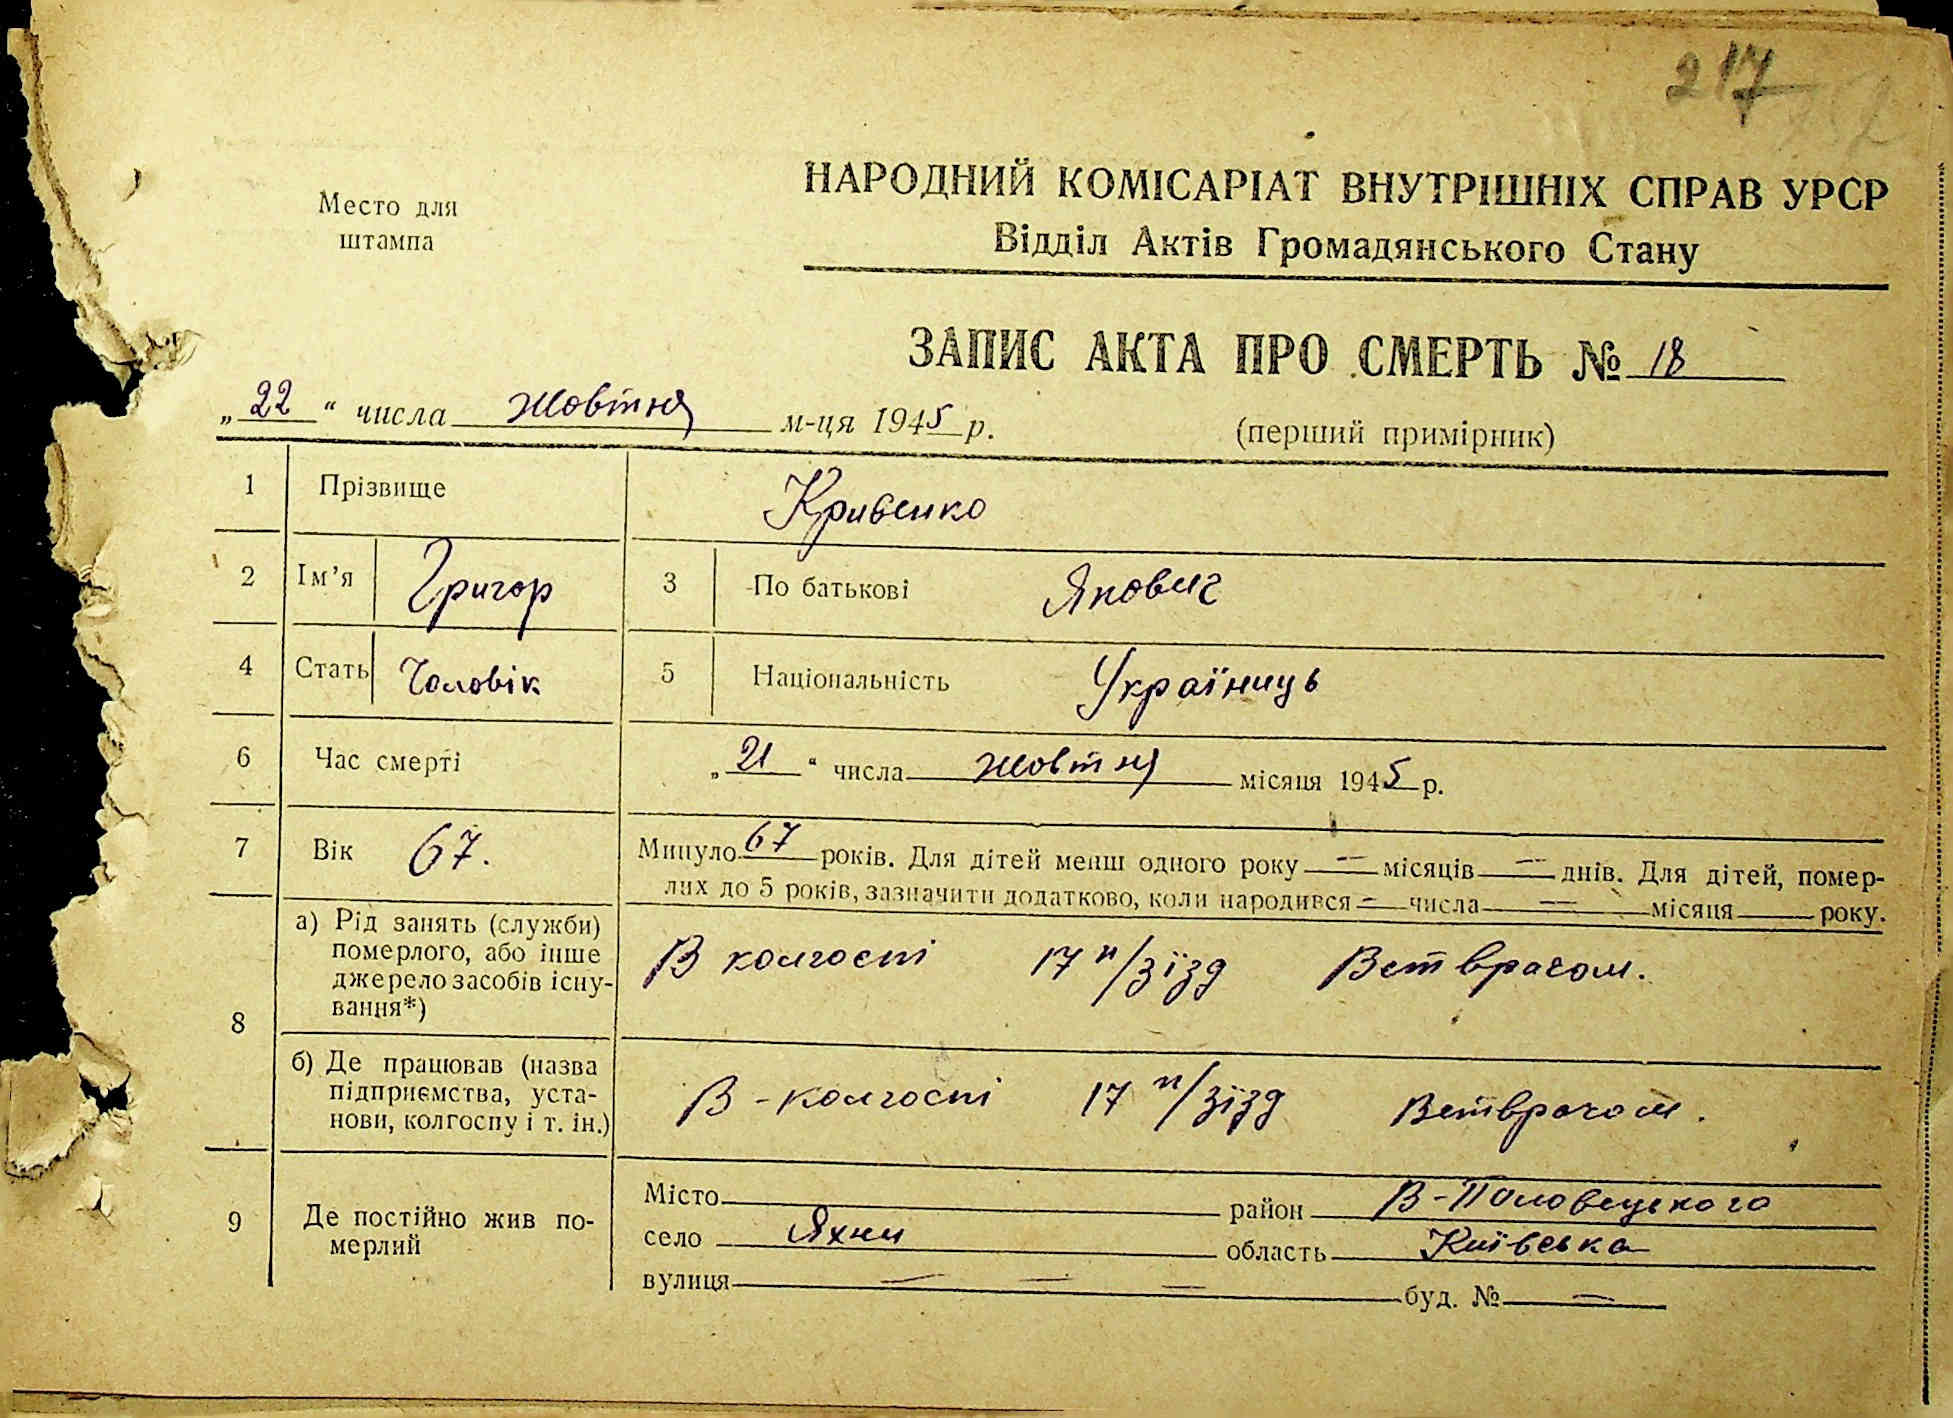 217
Место для
штампа
НАРОДНИЙ КОМІСАРІАТ ВНУТРІШНІХ СПРАВ УРСР
Відділ Актів Громадянського Стану
ЗАПИС АКТА ПРО СМЕРТЬ № 18
„22“ числа жовтня м-ця 1945 р.
(перший примірник)
1 Прізвище Кривенко
2 Ім'я Григор 3 По батькові Якович
4 Стать Чоловік 5 Національність Украïниць
6 Час смерті „21“ числа жовтня місяця 1945 р.
7 Вік 67. Минуло 67 років. Для дітей менш одного року — місяців — днів. Для дітей, помер-
лих до 5 років, зазначити додатково, коли народився — числа — місяця року.
8 а) Рід занять (служби)
померлого, або інше
джерело засобів існу-
вання*)
В колгоспі 17 п/зїзд Вет врачом.
б) Де працював (назва
підприємства, уста-
нови, колгоспу і т. ін.)
В - колгоспі 17 п/зїзд Ветврачом.
9 Де постійно жив по-
мерлий
Місто район В-Половецького
село Яхни область Київська
вулиця — — — буд. № —